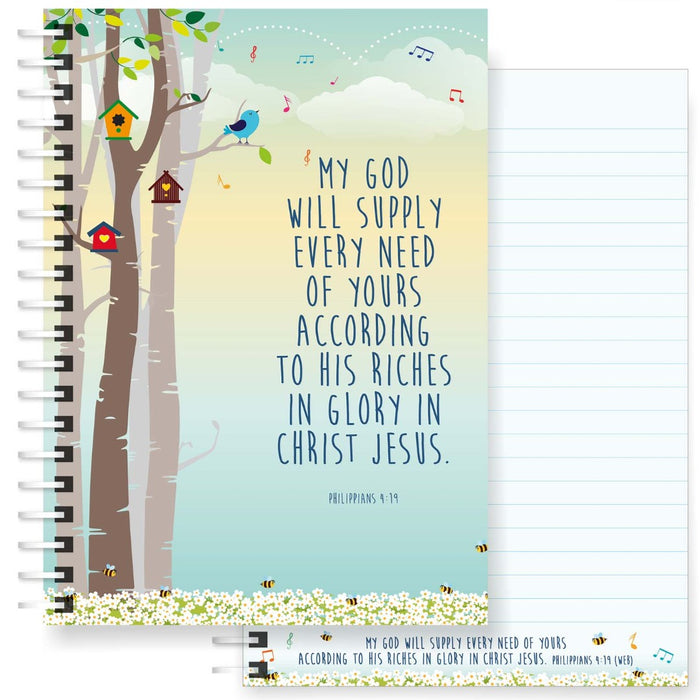 MY GOD
WILL SUPPLY
EVERY NEED
OF YOURS
ACCORDING
TO HIS RICHES
IN GLORY IN
CHRIST JESUS.
PHILIPPIANS 4:19
MY GOD WILL SUPPLY EVERY NEED OF YOURS
ACCORDING TO HIS RICHES IN GLORY IN CHRIST JESUS. PHILIPPIANS 4:19 (WEB)